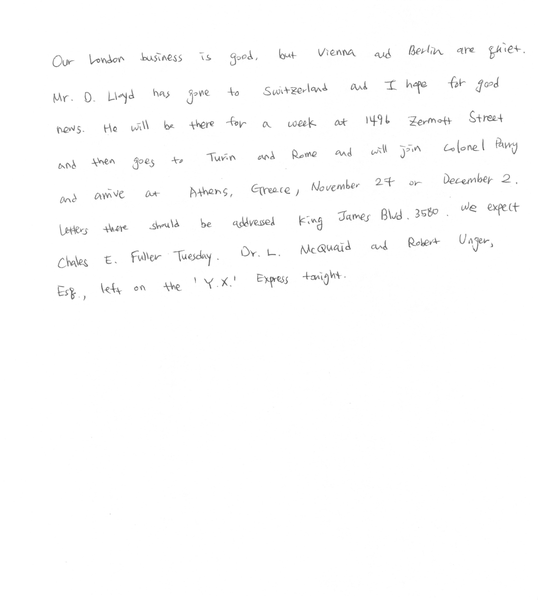 Our London business is good, but Vienna and Berlin are quiet.
Mr. D. Lloyd has gone to Switzerland and I hope for good
news. He will be there for a week at 1496 Zermott Street
and then goes to Turin and Rome and will join Colonel Parry
and arrive at Athens, Greece, November 27 or December 2.
Letters there should be addressed King James Blvd. 3580. We expect
Chales E. Fuller Tuesday. Dr. L. McQuaid and Robert Unger,
Esq., left on the 'Y.X.' Express tonight.